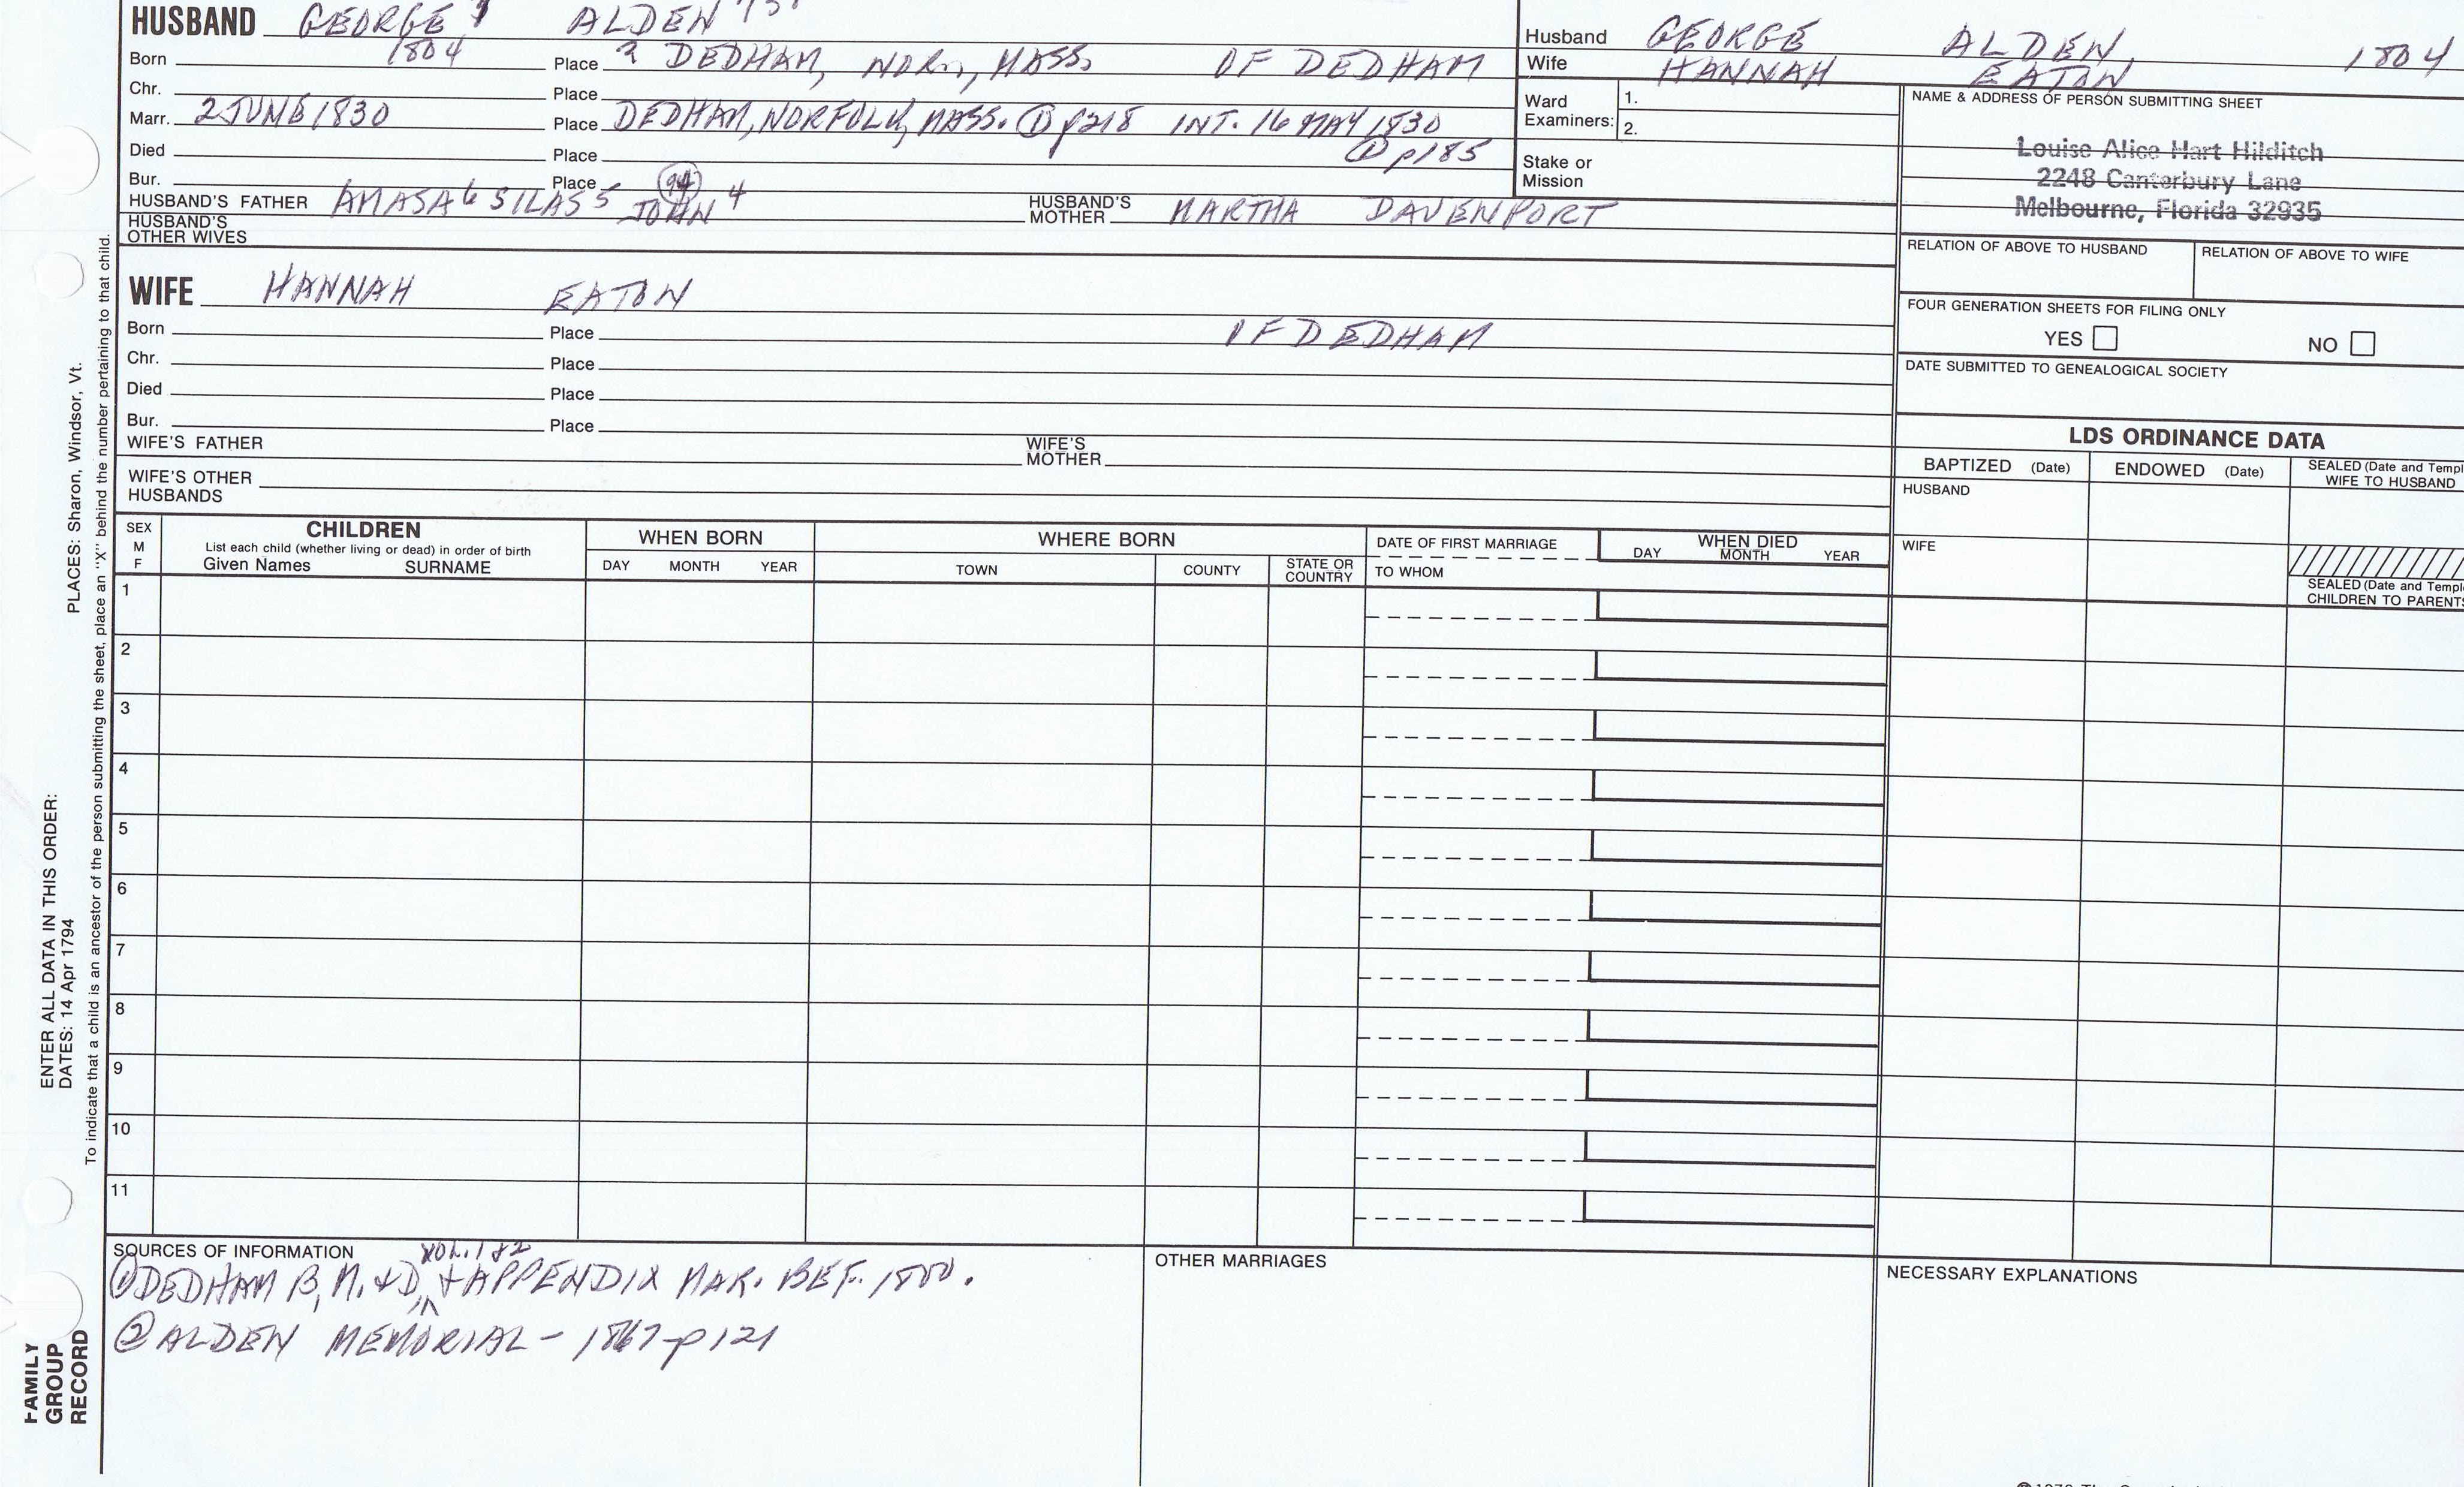 HUSBAND GEORGE ALDEN
Born 1804 Place ? DEDHAM, NOR., MASS. OF DEDHAM
Chr. Place
Marr. 2 JUNE 1830 Place DEDHAM, NORFOLK, MASS. ① p218 INT. 16 MAY 1830
① p185
Died Place
Bur. Place
HUSBAND'S FATHER AMASA 6 SILAS 5 JOHN 4 94 HUSBAND'S MOTHER MARTHA DAVENPORT
HUSBAND'S OTHER WIVES
WIFE HANNAH EATON
Born Place OF DEDHAM
Chr. Place
Died Place
Bur. Place
WIFE'S FATHER WIFE'S MOTHER
WIFE'S OTHER HUSBANDS
Husband GEORGE ALDEN, 1804
Wife HANNAH EATON
Ward Examiners: 1.
2.
Stake or Mission
NAME & ADDRESS OF PERSON SUBMITTING SHEET
Louise Alice Hart Hilditch
2248 Canterbury Lane
Melbourne, Florida 32935
RELATION OF ABOVE TO HUSBAND RELATION OF ABOVE TO WIFE
FOUR GENERATION SHEETS FOR FILING ONLY
YES NO
DATE SUBMITTED TO GENEALOGICAL SOCIETY
LDS ORDINANCE DATA
BAPTIZED (Date) ENDOWED (Date) SEALED (Date and Templ
WIFE TO HUSBAND
HUSBAND
WIFE
SEALED (Date and Templ
CHILDREN TO PARENTS
SEX M F
CHILDREN
List each child (whether living or dead) in order of birth
Given Names SURNAME
WHEN BORN
DAY MONTH YEAR
WHERE BORN
TOWN COUNTY STATE OR COUNTRY
DATE OF FIRST MARRIAGE
TO WHOM
WHEN DIED
DAY MONTH YEAR
1
2
3
4
5
6
7
8
9
10
11
SOURCES OF INFORMATION
VOL. 1 & 2
① DEDHAM B, M. & D, + APPENDIX MAR. BEF. 1800.
② ALDEN MEMORIAL - 1867 - p 121
OTHER MARRIAGES
NECESSARY EXPLANATIONS
ENTER ALL DATA IN THIS ORDER:
DATES: 14 Apr 1794 PLACES: Sharon, Windsor, Vt.
To indicate that a child is an ancestor of the person submitting the sheet, place an "X" behind the number pertaining to that child.
FAMILY
GROUP
RECORD